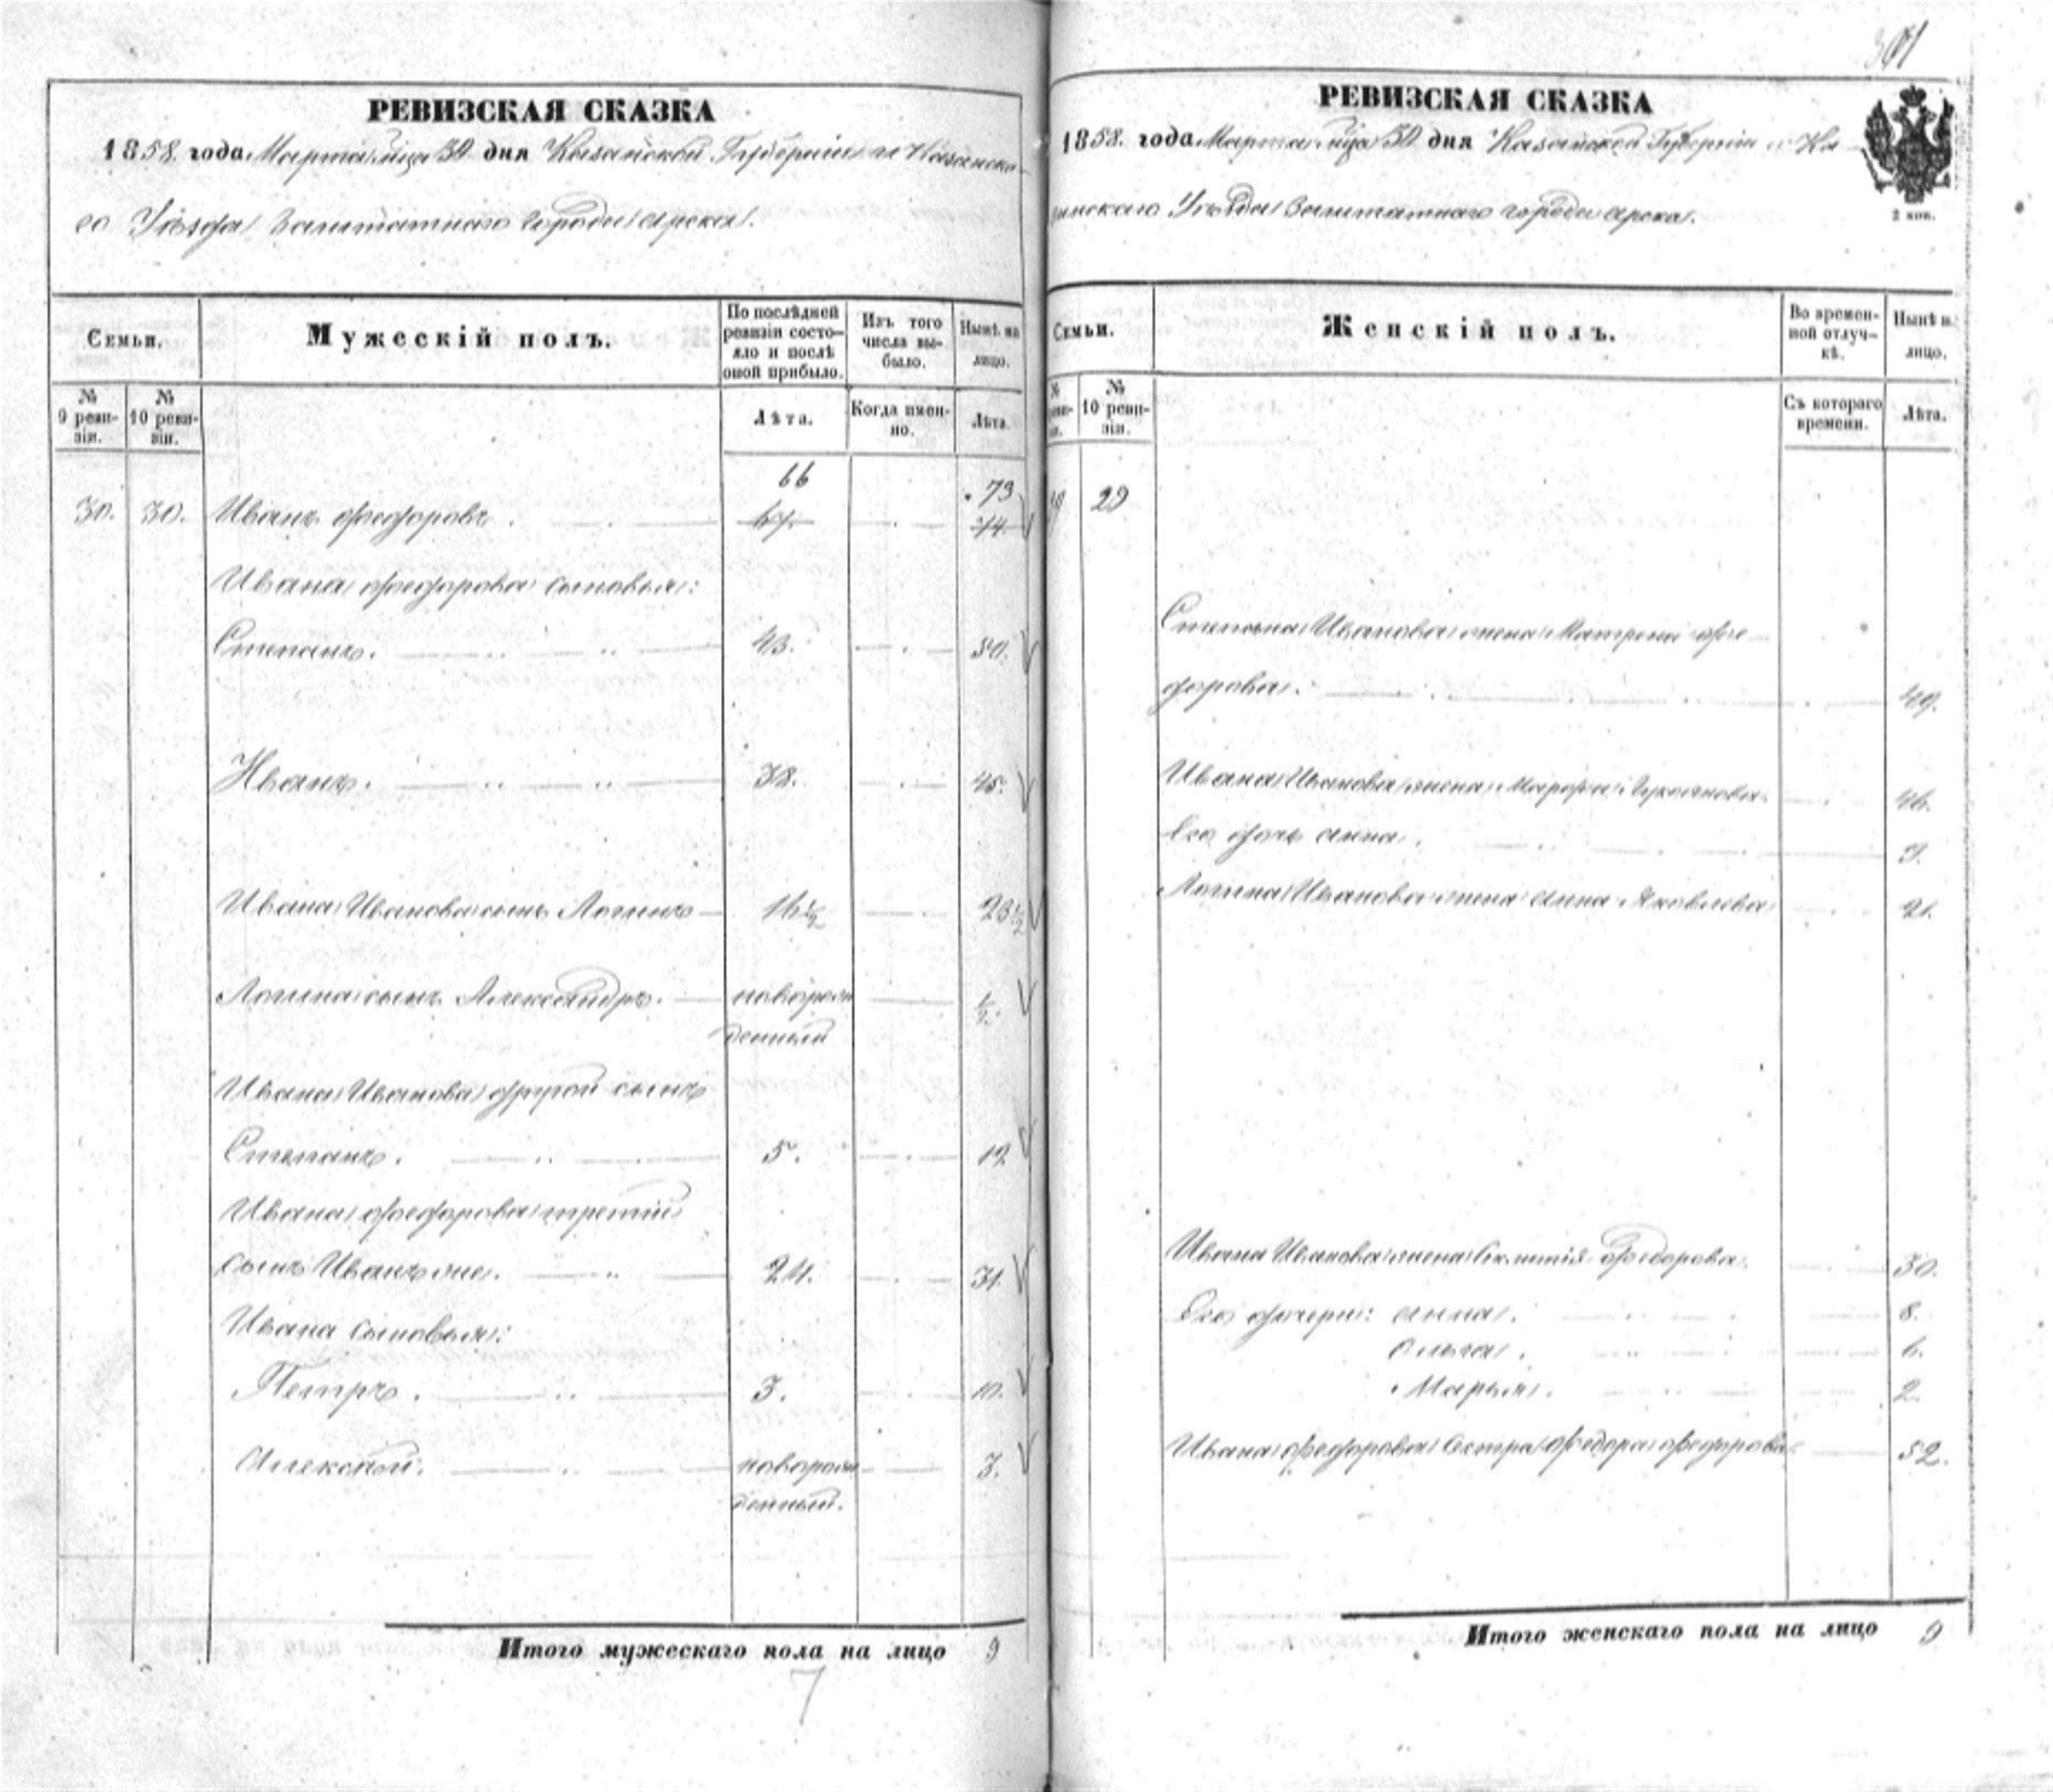 РЕВИЗСКАЯ СКАЗКА
1858. года Марта м҃ца 30 дня Казанской Губернии и Казанска-
го Уѣзда Заштатнаго города Арска.
Семьи.
Мужескій полъ.
По послѣдней ревизіи состо-
яло и послѣ оной прибыло.
Изъ того числа вы-
было.
Нынѣ на лицо.
№ 9 реви-
зіи.
№ 10 реви-
зіи.
Лѣта.
Когда имен-
но.
Лѣта.
66 73
30. 30. Иванъ Федоровъ. 67. 74
Ивана Федорова сыновья:
Степанъ. 43. 50.
Иванъ. 38. 45.
Ивана Иванова сынъ Логинъ 16½ 23½
Логина сынъ Александръ. новорож
денный ½
Ивана Иванова другой сынъ
Степанъ. 5. 12
Ивана Федорова третій
сынъ Иванъ же. 24. 31.
Ивана сыновья:
Петръ. 3. 10.
Алексѣй. новорож
денный. 7.
Итого мужескаго пола на лицо 9
7
301
РЕВИЗСКАЯ СКАЗКА
1858. года Марта м҃ца 30 дня Казанской Губерніи и Ка-
занскаго Уѣзда Заштатнаго города Арска.
2 коп.
Семьи.
Женскій полъ.
Во времен-
ной отлуч-
кѣ.
Нынѣ н.
лицо.
№
10 реви-
зіи.
Съ котораго
времени.
Лѣта.
29
Степана Иванова жена Матрена Фе-
дорова. 49.
Ивана Иванова жена Марфа Лукоянова 46.
Его дочь Анна.
Логина Иванова жена Анна Яковлева 21.
Ивана Иванова жена Федорова 30.
Его дочери: Анна. 8.
Ольга. 6.
Марья. 2.
Ивана Федорова сестра Федора Федорова 52.
Итого женскаго пола на лицо 9